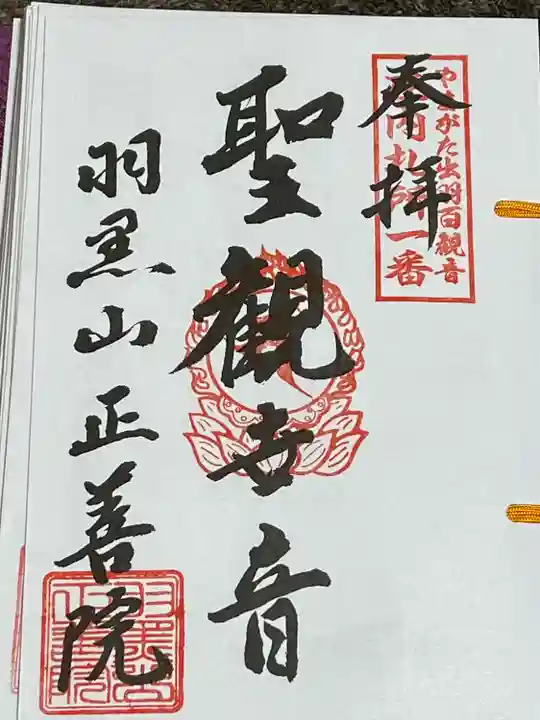 やまがた出羽百観音
庄内札所一番
奉拝
聖観世音
羽黒山正善院